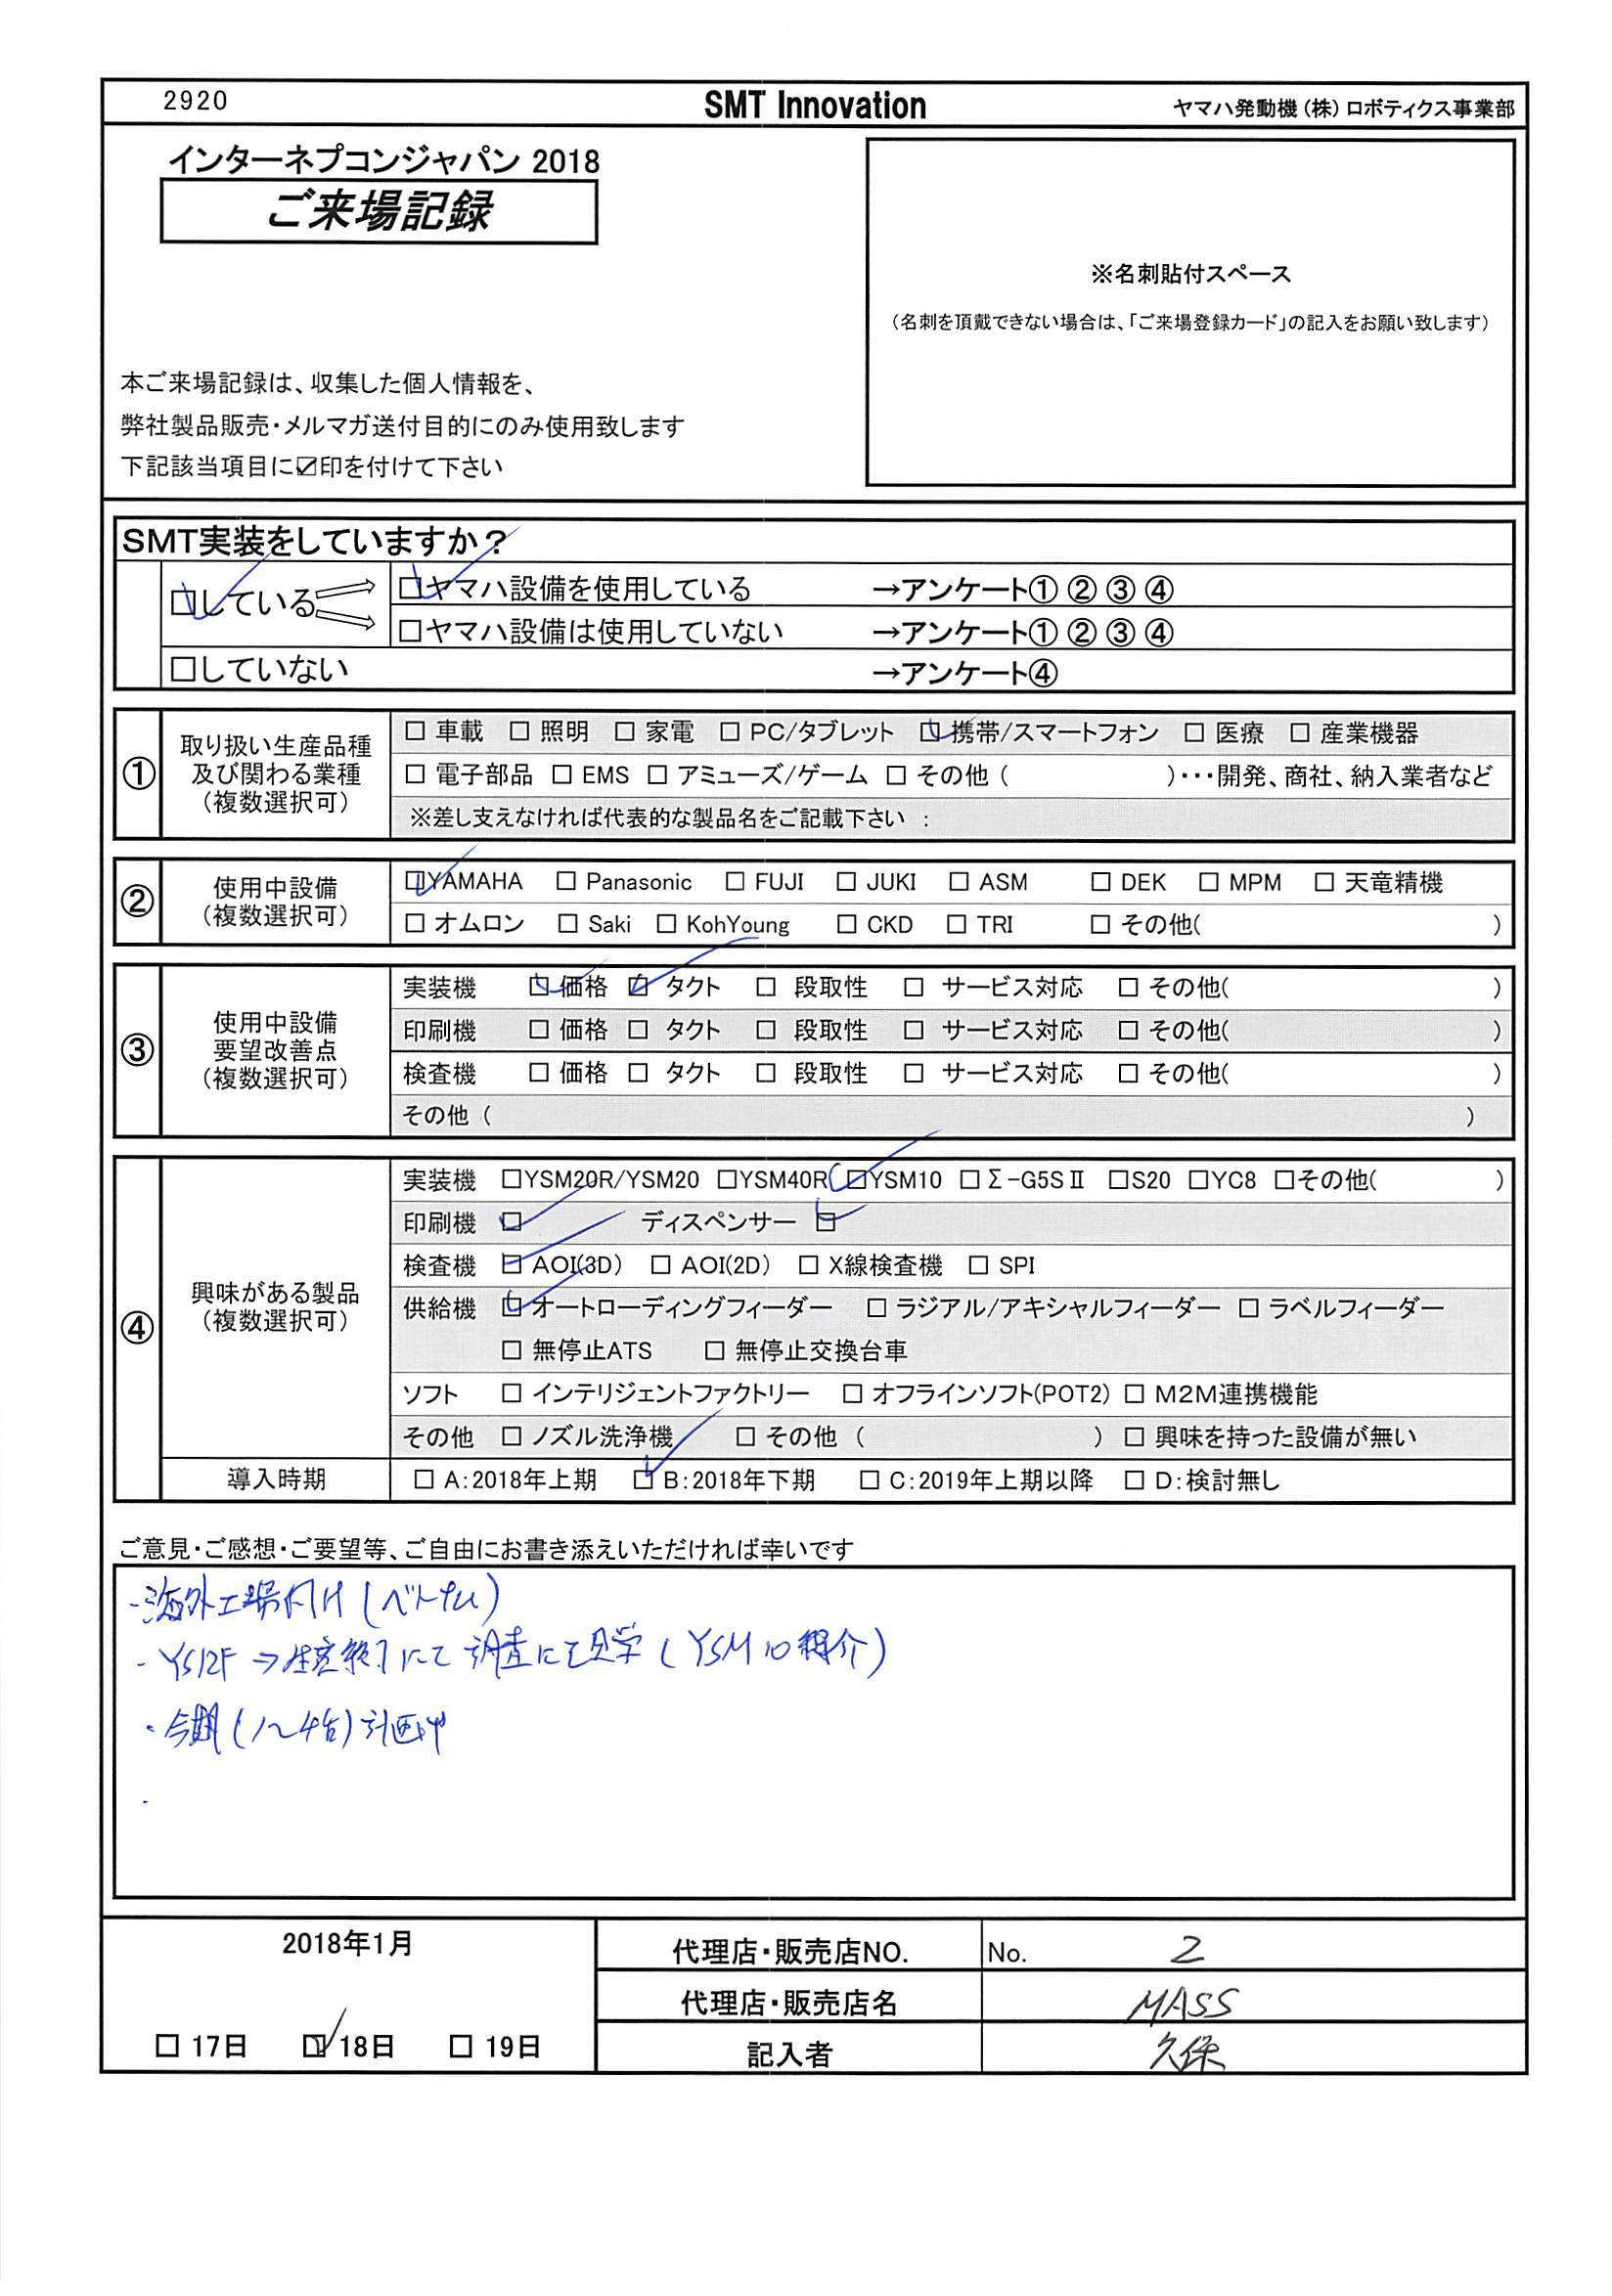 2920 SMT Innovation ヤマハ発動機(株)ロボティクス事業部
インターネプコンジャパン 2018
ご来場記録
※名刺貼付スペース
(名刺を頂戴できない場合は、「ご来場登録カード」の記入をお願い致します)
本ご来場記録は、収集した個人情報を、
弊社製品販売・メルマガ送付目的にのみ使用致します
下記該当項目に☑印を付けて下さい
SMT実装をしていますか?
☑している ☑ヤマハ設備を使用している →アンケート① ② ③ ④
□ヤマハ設備は使用していない →アンケート① ② ③ ④
□していない →アンケート④
① 取り扱い生産品種
及び関わる業種
(複数選択可)
□ 車載 □ 照明 □ 家電 □ PC/タブレット ☑ 携帯/スマートフォン □ 医療 □ 産業機器
□ 電子部品 □ EMS □ アミューズ/ゲーム □ その他 ( )・・・開発、商社、納入業者など
※差し支えなければ代表的な製品名をご記載下さい :
② 使用中設備
(複数選択可)
☑YAMAHA □ Panasonic □ FUJI □ JUKI □ ASM □ DEK □ MPM □ 天竜精機
□ オムロン □ Saki □ KohYoung □ CKD □ TRI □ その他( )
③ 使用中設備
要望改善点
(複数選択可)
実装機 ☑ 価格 ☑ タクト □ 段取性 □ サービス対応 □ その他( )
印刷機 □ 価格 □ タクト □ 段取性 □ サービス対応 □ その他( )
検査機 □ 価格 □ タクト □ 段取性 □ サービス対応 □ その他( )
その他 ( )
④ 興味がある製品
(複数選択可)
実装機 □YSM20R/YSM20 □YSM40R ☑YSM10 □Σ-G5SⅡ □S20 □YC8 □その他( )
印刷機 ☑ ディスペンサー ☑
検査機 ☑ AOI(3D) □ AOI(2D) □ X線検査機 □ SPI
供給機 ☑ オートローディングフィーダー □ ラジアル/アキシャルフィーダー □ ラベルフィーダー
□ 無停止ATS □ 無停止交換台車
ソフト □ インテリジェントファクトリー □ オフラインソフト(POT2) □ M2M連携機能
その他 □ ノズル洗浄機 □ その他 ( ) □ 興味を持った設備が無い
導入時期 □ A:2018年上期 ☑ B:2018年下期 □ C:2019年上期以降 □ D:検討無し
ご意見・ご感想・ご要望等、ご自由にお書き添えいただければ幸いです
・海外工場付け(ベトナム)
・YS12F→生産終了にて調査にて見学(YSM10紹介)
・今期(1〜4台)計画中
・
2018年1月
□ 17日 ☑ 18日 □ 19日
代理店・販売店NO. No. 2
代理店・販売店名 MASS
記入者 久保